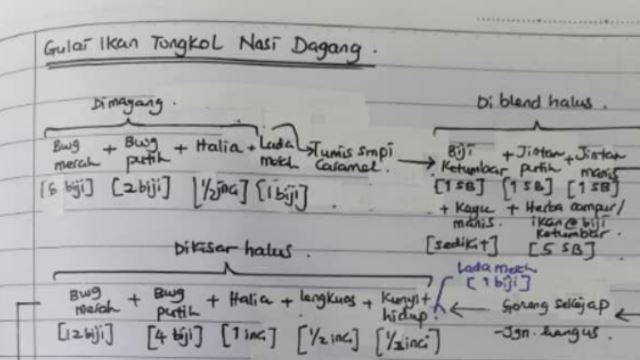 Gulai Ikan Tongkol Nasi Dagang.
Dimayang.
Bwg merah + Bwg putih + Halia + Lada merah
Tumis smpi Caramal.
[8 biji] [2 biji] [1/2 inci] [1 biji]
Di blend halus.
Biji Ketumbar + Jintan putih + Jintan manis
[1 SB] [1 SB] [1 SB]
+ Kayu manis. + Herba campur/ ikan @ biji Ketumbar.
[sedikit] [5 SB]
Dikisar halus.
Bwg merah + Bwg putih + Halia + lengkuas + Kunyit hidup.
[12 biji] [4 biji] [1 inci] [1/2 inci] [1/2 inci]
Lada merah
[1 biji]
Goreng sekejap
-Jgn. hangus.